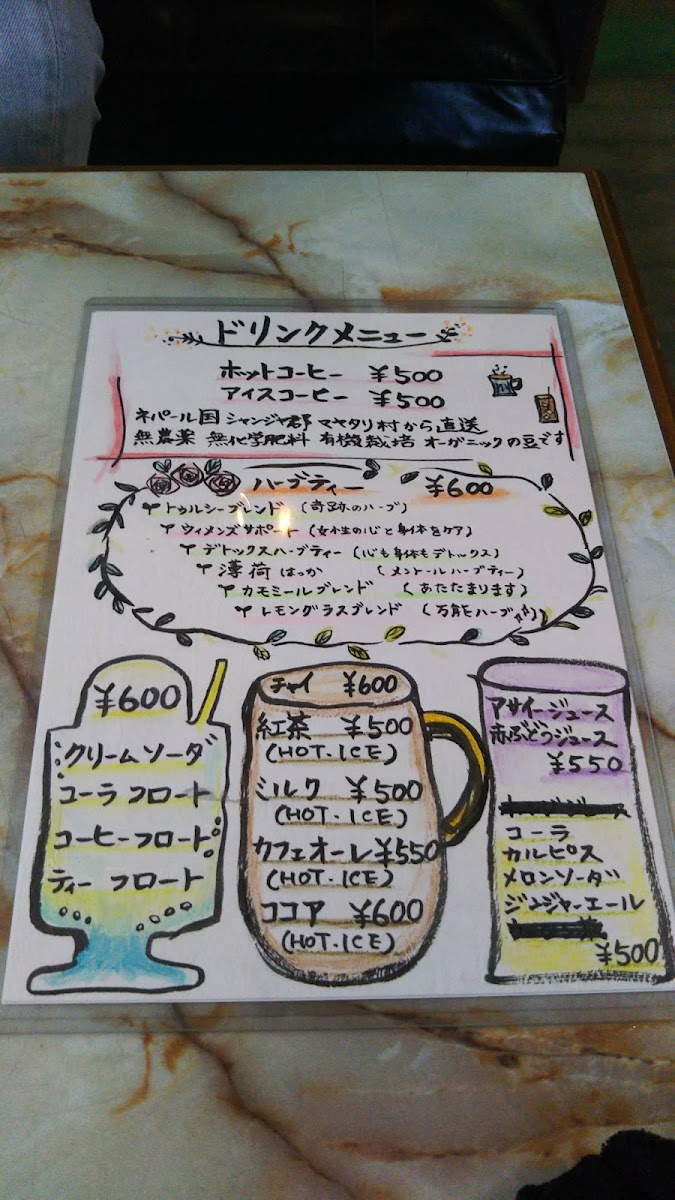 ドリンクメニュー
ホットコーヒー ¥500
アイスコーヒー ¥500
ネパール国 シャンジャ郡 マヤタリ村から直送
無農薬 無化学肥料 有機栽培 オーガニックの豆です
ハーブティー ¥600
トゥルシーブレンド (奇跡のハーブ)
ウィメンズサポート (女性の心と身体をケア)
デトックスハーブティー (心も身体もデトックス)
薄荷 はっか (メントールハーブティー)
カモミールブレンド (あたたまります)
レモングラスブレンド (万能ハーブ)
¥600
クリームソーダ
コーラフロート
コーヒーフロート
ティーフロート
チャイ ¥600
紅茶 ¥500
(HOT・ICE)
ミルク ¥500
(HOT・ICE)
カフェオーレ ¥550
(HOT・ICE)
ココア ¥600
(HOT・ICE)
アサイージュース
赤ぶどうジュース
¥550
コーラ
カルピス
メロンソーダ
ジンジャーエール
¥500